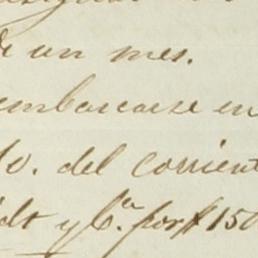 de un mes.
embarcarse en
do. del corrient
idt y Ca. por $ 150